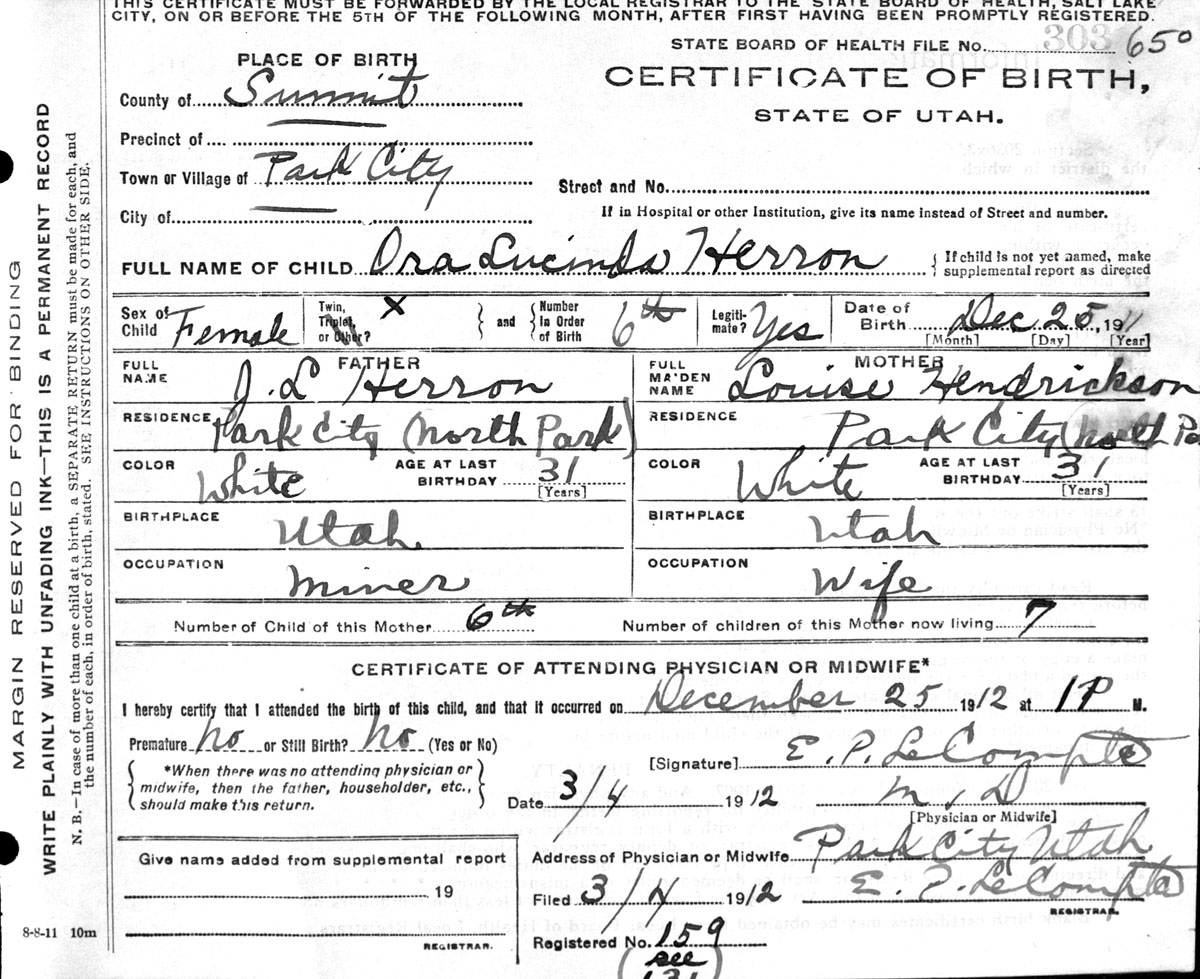 THIS CERTIFICATE MUST BE FORWARDED BY THE LOCAL REGISTRAR TO THE STATE BOARD OF HEALTH, SALT LAKE
CITY, ON OR BEFORE THE 5TH OF THE FOLLOWING MONTH, AFTER FIRST HAVING BEEN PROMPTLY REGISTERED.
STATE BOARD OF HEALTH FILE No. 303 650
PLACE OF BIRTH
CERTIFICATE OF BIRTH,
County of Summit
STATE OF UTAH.
Precinct of
Town or Village of Park City
Street and No.
City of
If in Hospital or other Institution, give its name instead of Street and number.
FULL NAME OF CHILD Ora Lucinda Herron { If child is not yet named, make supplemental report as directed
Sex of Child Female
Twin, Triplet, or Other? X } and { Number In Order of Birth 6th
Legitimate? Yes
Date of Birth Dec 25, 1911
[Month] [Day] [Year]
FATHER
FULL NAME J. L Herron
MOTHER
FULL MAIDEN NAME Louise Hendrickson
RESIDENCE Park City (North Park)
RESIDENCE Park City (North Pa
COLOR White AGE AT LAST BIRTHDAY 31 [Years]
COLOR White AGE AT LAST BIRTHDAY 31 [Years]
BIRTHPLACE Utah
BIRTHPLACE Utah
OCCUPATION Miner
OCCUPATION Wife
Number of Child of this Mother 6th
Number of children of this Mother now living 7
CERTIFICATE OF ATTENDING PHYSICIAN OR MIDWIFE*
I hereby certify that I attended the birth of this child, and that it occurred on December 25 1912 at 1P M.
Premature No or Still Birth? No (Yes or No)
{ *When there was no attending physician or midwife, then the father, householder, etc., should make this return. }
[Signature] E. P. LeCompte
Date 3/4 1912 M. D
[Physician or Midwife]
Give name added from supplemental report
19
REGISTRAR.
Address of Physician or Midwife Park City Utah
Filed 3/4 1912 E. P. LeCompte
REGISTRAR.
Registered No. 159
(see
131
8-8-11 10m
MARGIN RESERVED FOR BINDING
WRITE PLAINLY WITH UNFADING INK—THIS IS A PERMANENT RECORD
N. B.—In case of more than one child at a birth, a SEPARATE RETURN must be made for each, and
the number of each, in order of birth, stated. SEE INSTRUCTIONS ON OTHER SIDE.